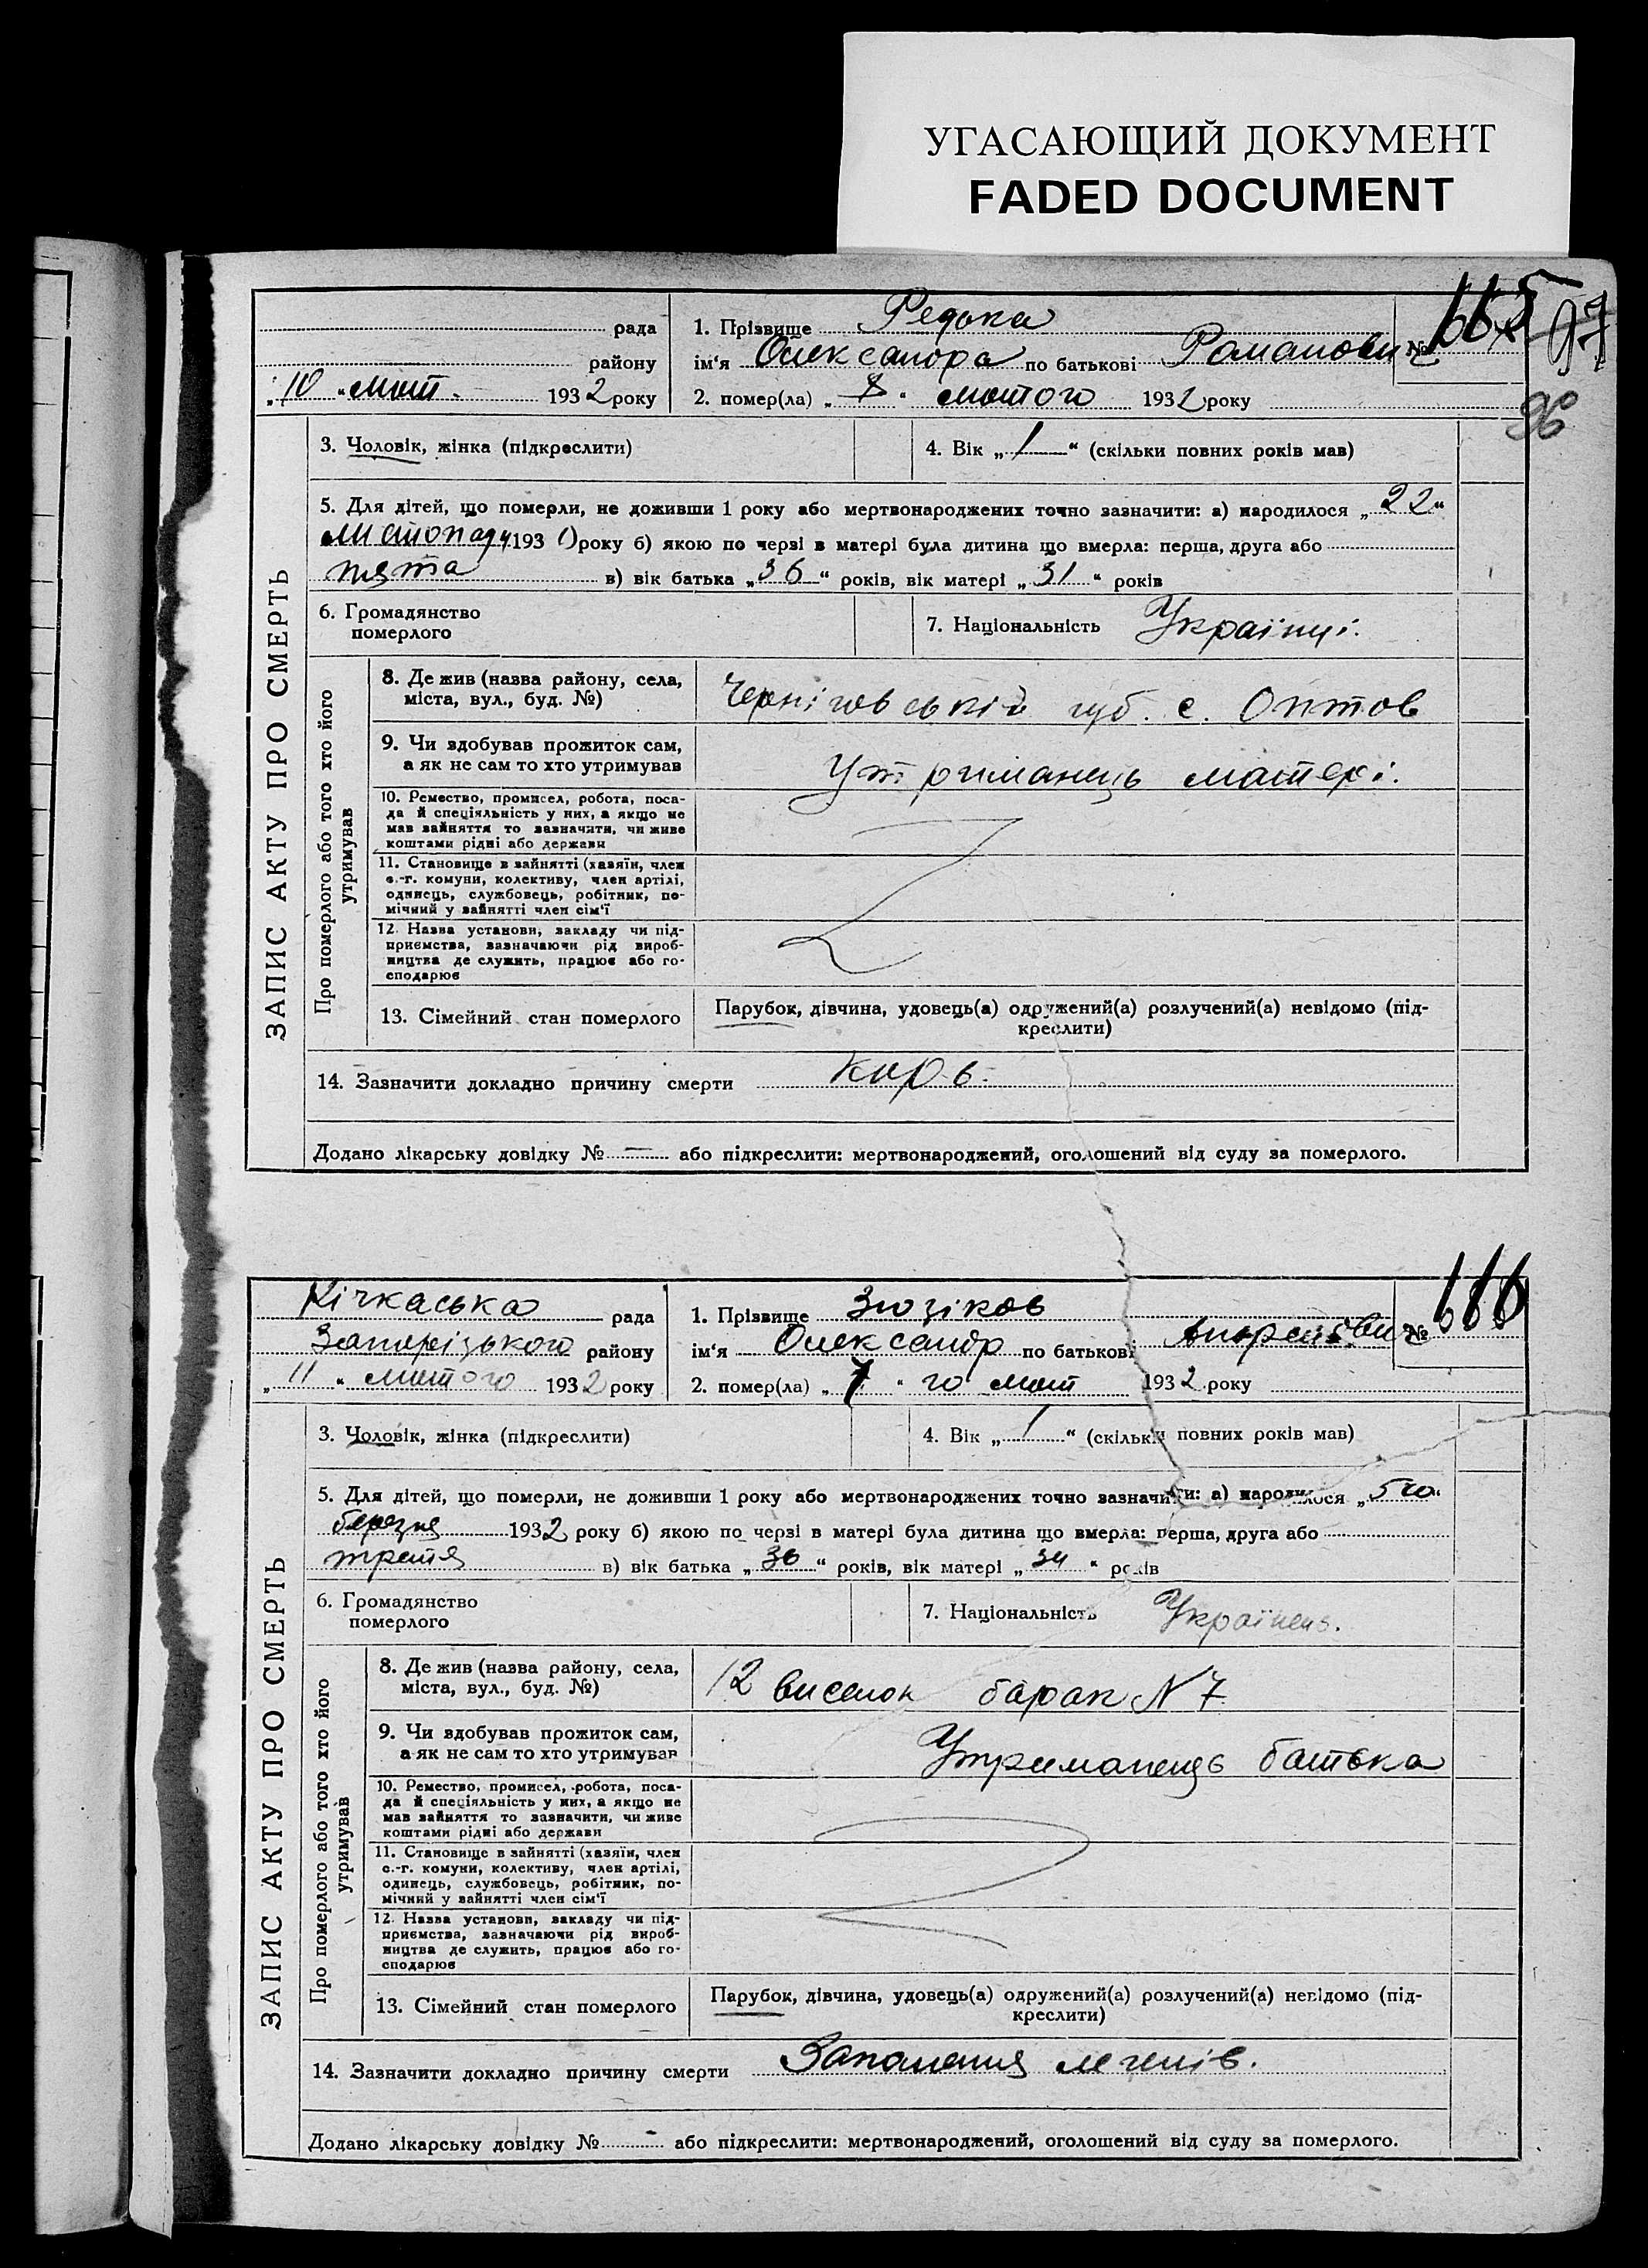 УГАСАЮЩИЙ ДОКУМЕНТ
FADED DOCUMENT
рада
району
„10“ лют. 1932 року
1. Прізвище Редька
ім'я Олександра по батькові Романович №
2. помер(ла) „8“ лютого 1932 року
97
96
ЗАПИС АКТУ ПРО СМЕРТЬ
3. Чоловік, жінка (підкреслити)
4. Вік „1“ (скільки повних років мав)
5. Для дітей, що померли, не доживши 1 року або мертвонароджених точно зазначити: а) народилося „22“
листопаду 193 року б) якою по черзі в матері була дитина що вмерла: перша, друга або
пята в) вік батька „36“ років, вік матері „31“ років
6. Громадянство
померлого
7. Національність Українці.
Про померлого або того хто його
утримував
8. Де жив (назва району, села,
міста, вул., буд. №)
Чернігівській губ. с. Оптов
9. Чи здобував прожиток сам,
а як не сам то хто утримував
Утриманець матері.
10. Ремество, промисел, робота, поса-
да й спеціяльність у них, а якщо не
мав зайняття то зазначити, чи живе
коштами рідні або держави
11. Становище в зайнятті (хазяїн, член
с.-г. комуни, колективу, член артілі,
одинець, службовець, робітник, по-
мічний у зайнятті член сім'ї
12. Назва установи, закладу чи під-
приємства, зазначаючи рід вироб-
ництва де служить, працює або го-
сподарює
13. Сімейний стан померлого
Парубок, дівчина, удовець(а) одружений(а) розлучений(а) невідомо (під-
креслити)
14. Зазначити докладно причину смерти Кір.
Додано лікарську довідку № — або підкреслити: мертвонароджений, оголошений від суду за померлого.
Кічкаська рада
Запорізького району
„11“ лютого 1932 року
1. Прізвище Зюзіков
ім'я Олександр по батькові Андрєєвич № 666
2. помер(ла) „7“ го лют 1932 року
ЗАПИС АКТУ ПРО СМЕРТЬ
3. Чоловік, жінка (підкреслити)
4. Вік „1“ (скільки повних років мав)
5. Для дітей, що померли, не доживши 1 року або мертвонароджених точно зазначити: а) народилося „5го“
березня 1932 року б) якою по черзі в матері була дитина що вмерла: перша, друга або
третя в) вік батька „36“ років, вік матері „34“ років
6. Громадянство
померлого
7. Національність Українець.
Про померлого або того хто його
утримував
8. Де жив (назва району, села,
міста, вул., буд. №)
12 виселок барак N 7
9. Чи здобував прожиток сам,
а як не сам то хто утримував
Утриманець батька
10. Ремество, промисел, робота, поса-
да й спеціяльність у них, а якщо не
мав зайняття то зазначити, чи живе
коштами рідні або держави
11. Становище в зайнятті (хазяїн, член
с.-г. комуни, колективу, член артілі,
одинець, службовець, робітник, по-
мічний у зайнятті член сім'ї
12. Назва установи, закладу чи під-
приємства, зазначаючи рід вироб-
ництва де служить, працює або го-
сподарює
13. Сімейний стан померлого
Парубок, дівчина, удовець(а) одружений(а) розлучений(а) невідомо (під-
креслити)
14. Зазначити докладно причину смерти Запалення легенів.
Додано лікарську довідку № - або підкреслити: мертвонароджений, оголошений від суду за померлого.